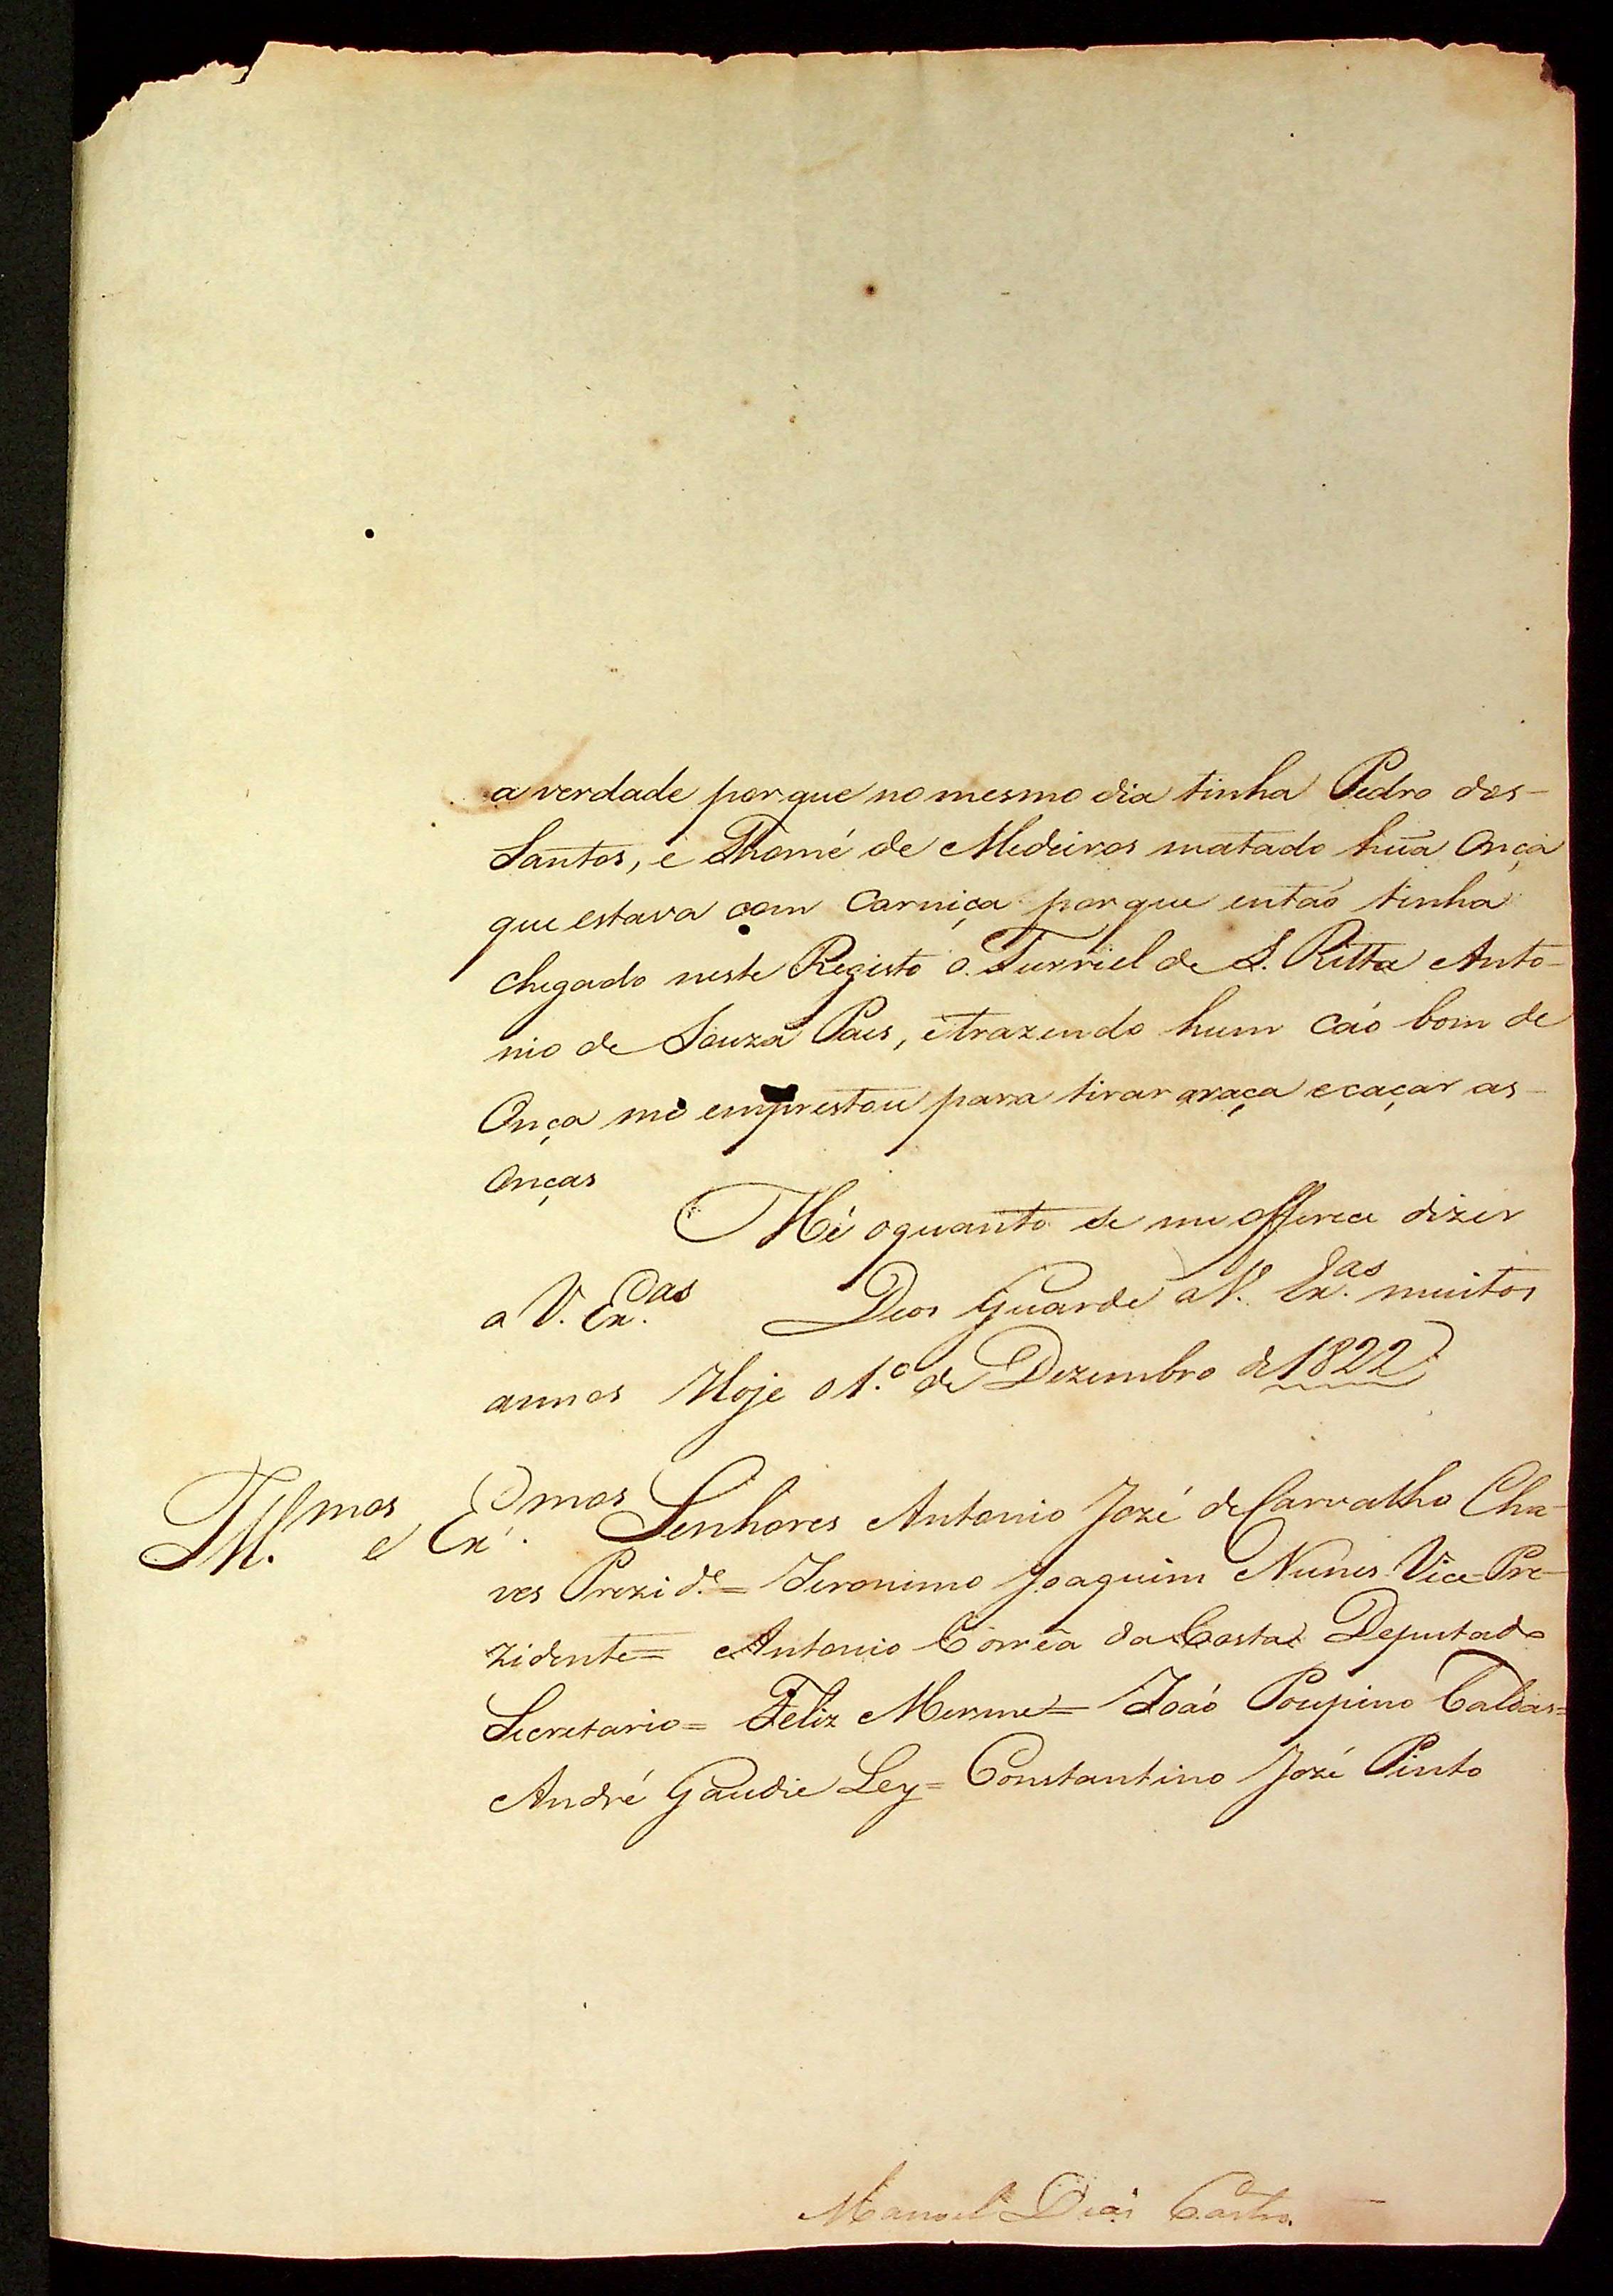 a verdade porque no mesmo dia tinha Pedro dos-
Santos, e Thomé de Medeiros matado hũa Onça
que estava com Carniça porque entaó tinha
chegado neste Registo o Furriel de S. Ritta Anto-
nio de Souza Paes, e trazendo hum Caó bom de
Onça me emprestou para tirar araça e caçar as-
Onças
Hé o quanto se me offerece dizer
a V. Ex.as Deos Guarde a V. Ex.as muitos
annos Hoje o 1.º de Dezembro de 1822
Ill.mos e Ex.mos Senhores Antonio Jozé de Carvalho Cha-
ves Prezid.e = Jeronimo Joaquim Nunes Vice-Pre-
zidente = Antonio Corrêa da Costa Deputado
Secretario = Feliz Merme = Joaó Poupino Caldas =
André Gaudie Ley = Constantino Jozé Pinto
Manoel Dias Castro.